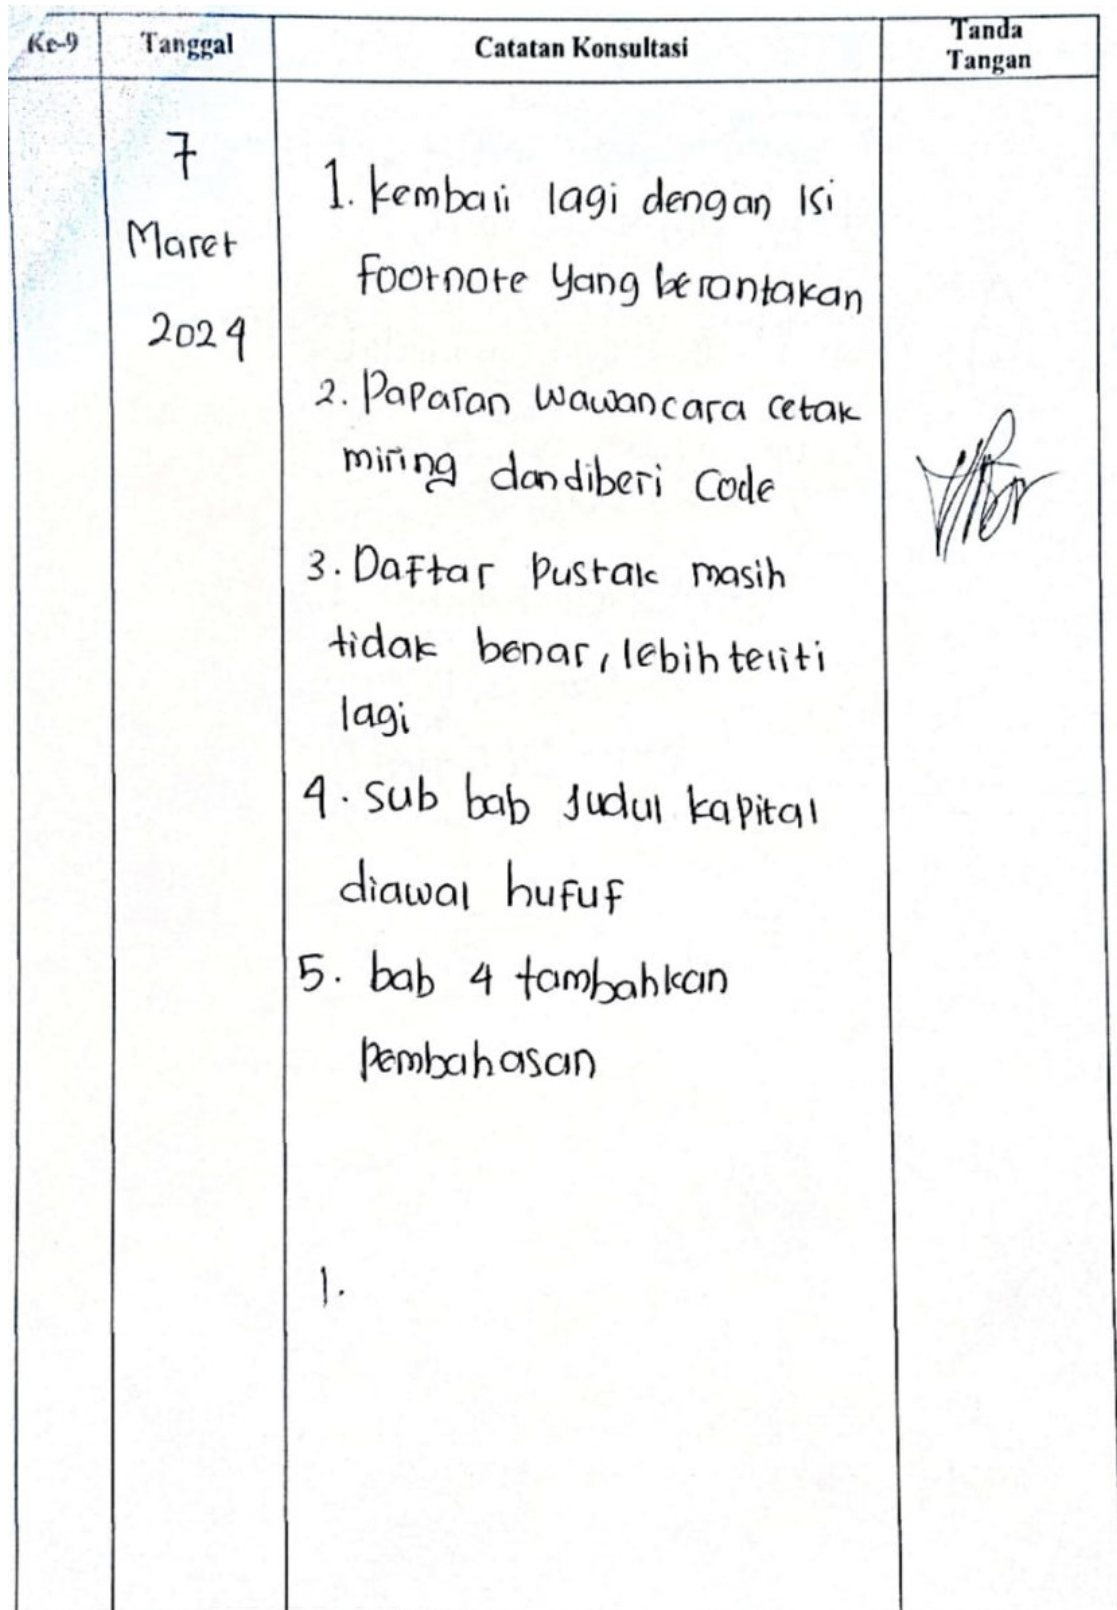 Ke-9 Tanggal Catatan Konsultasi Tanda Tangan
7
Maret
2024
1. kembali lagi dengan Isi
footnote yang berantakan
2. Paparan wawancara cetak
miring dan diberi Code
3. Daftar Pustak masih
tidak benar, lebih teliti
lagi
4. Sub bab Judul kapital
diawal huruf
5. bab 4 tambahkan
Pembahasan
1.